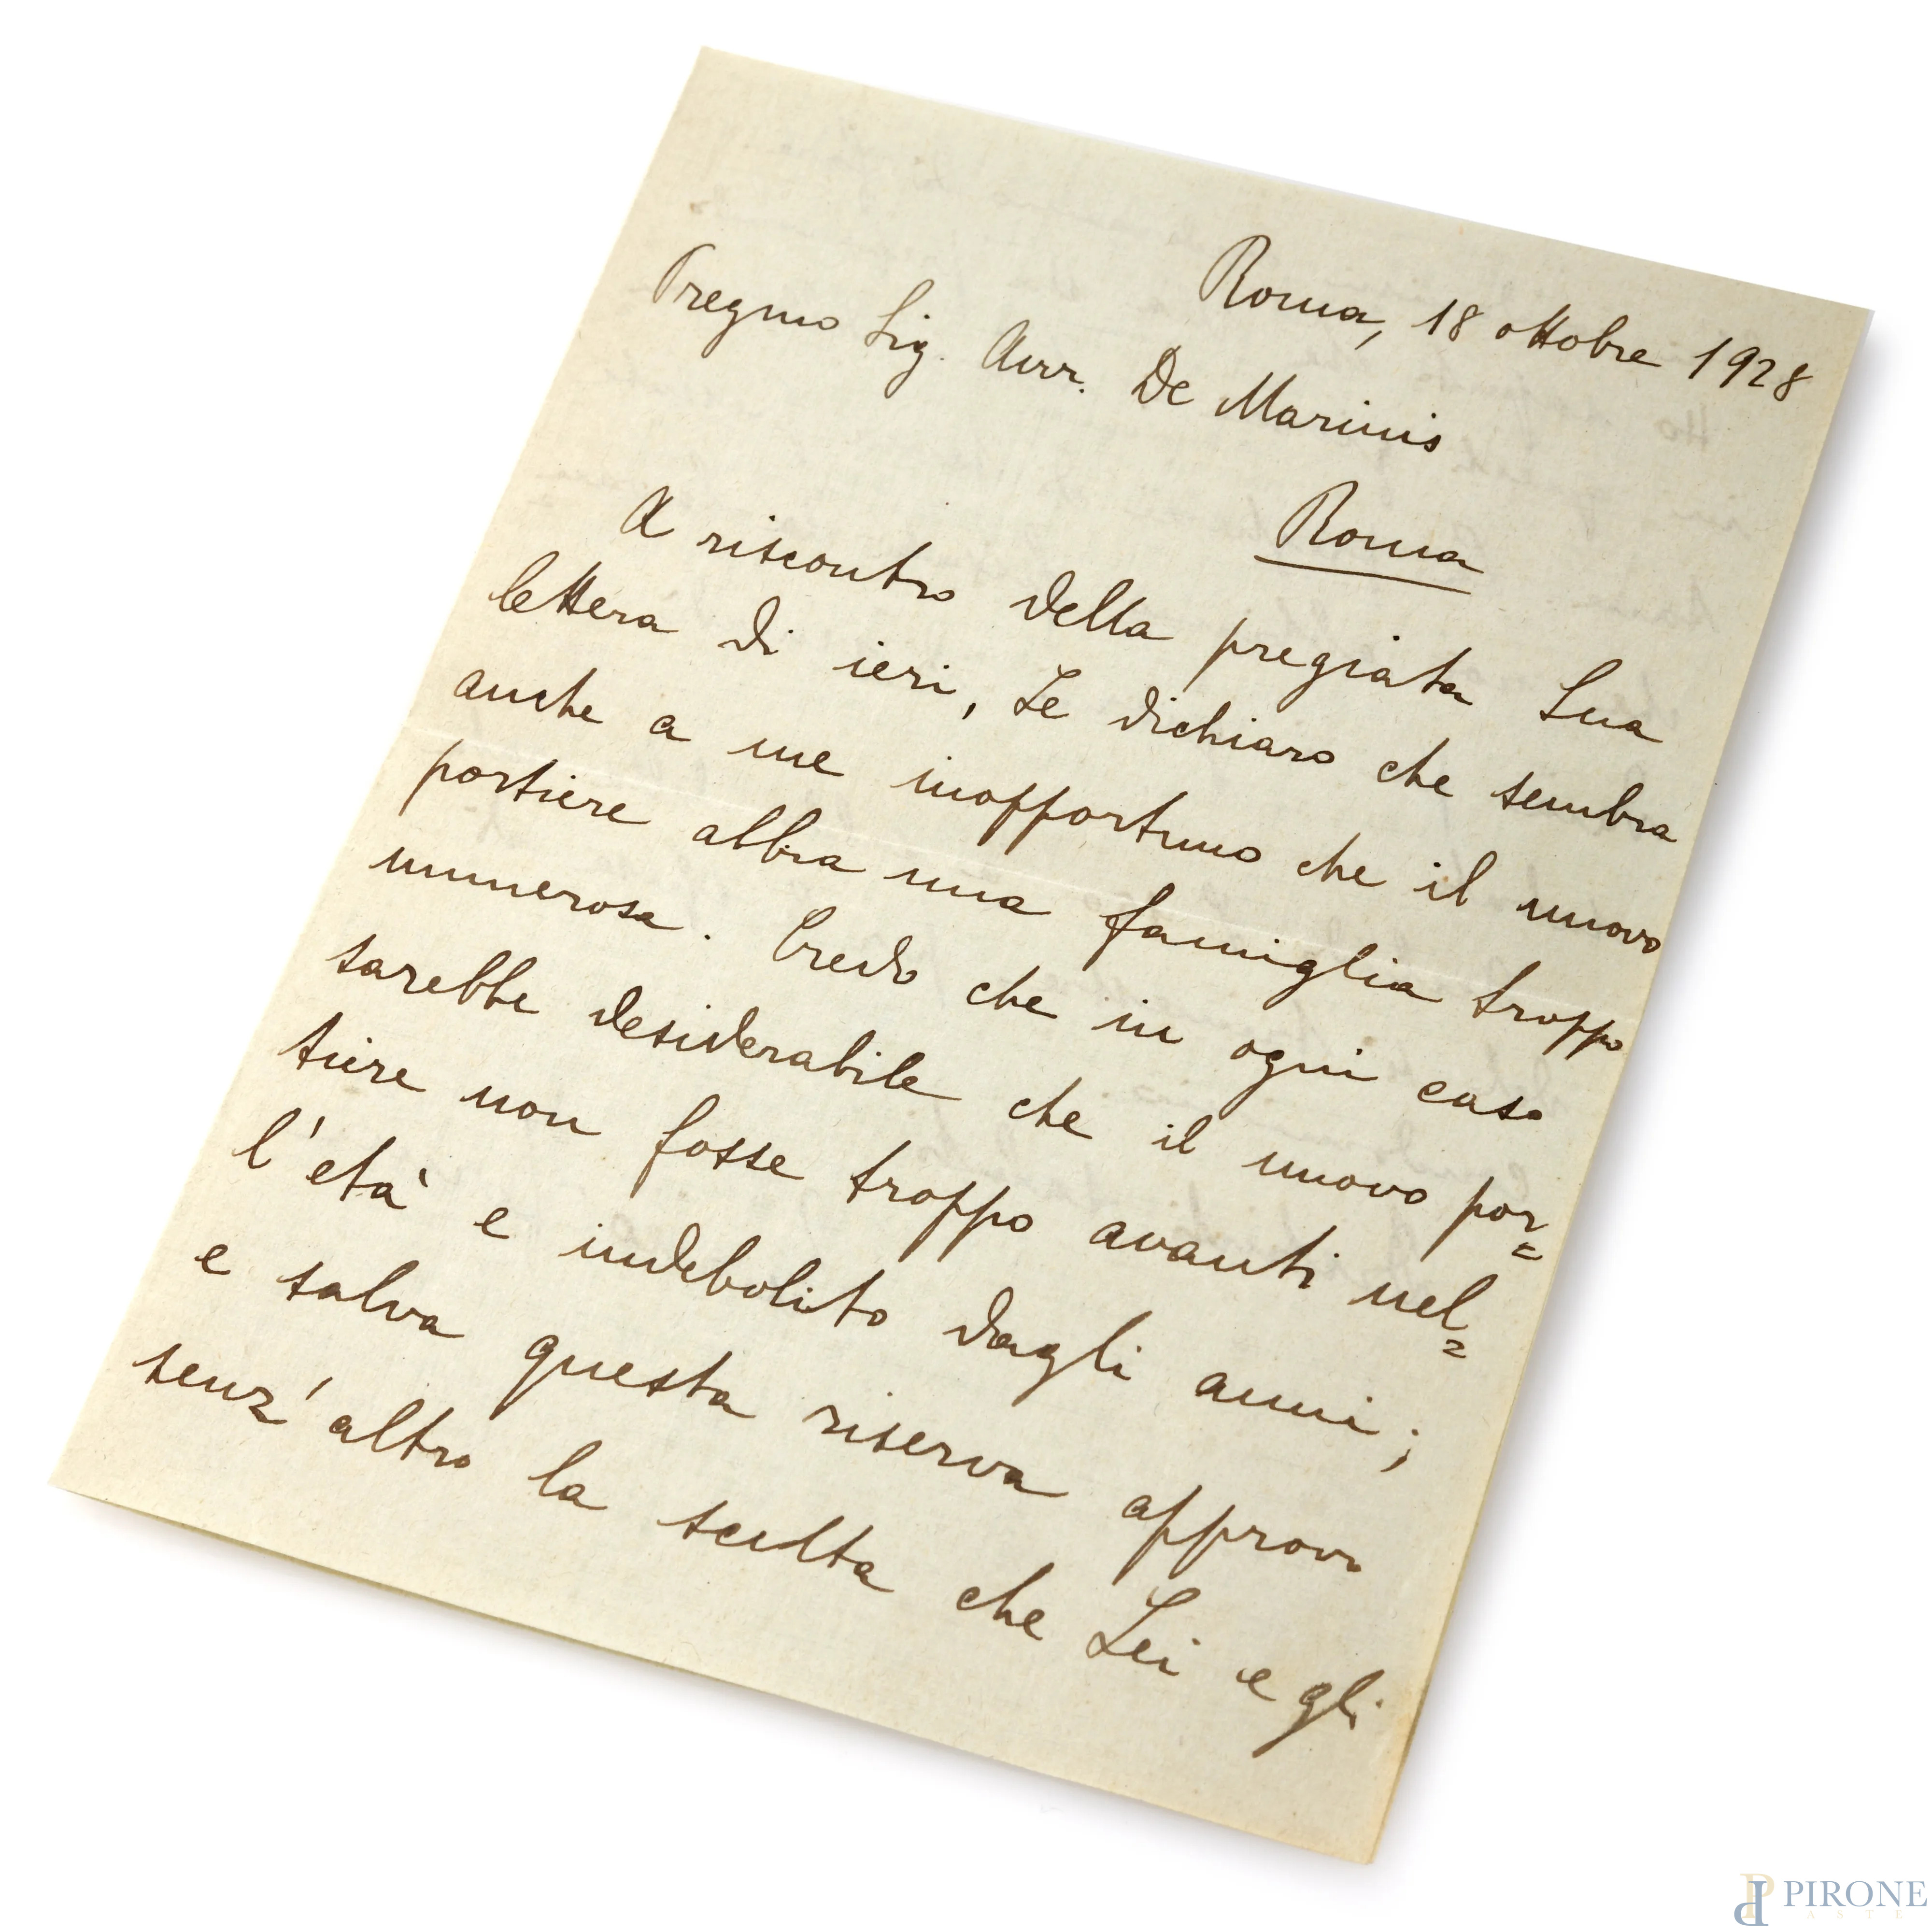 Roma, 18 ottobre 1928
Pregmo Sig. Avv. De Marinis
Roma
A riscontro della pregiata Sua
lettera di ieri, Le dichiaro che sembra
anche a me inopportuno che il nuovo
portiere abbia una famiglia troppo
numerosa. Credo che in ogni caso
sarebbe desiderabile che il nuovo por=
tiere non fosse troppo avanti nel=
l'età e indebolito dagli anni;
e salva questa riserva approvo
senz'altro la scelta che Lei e gli
PIRONE
ASTE